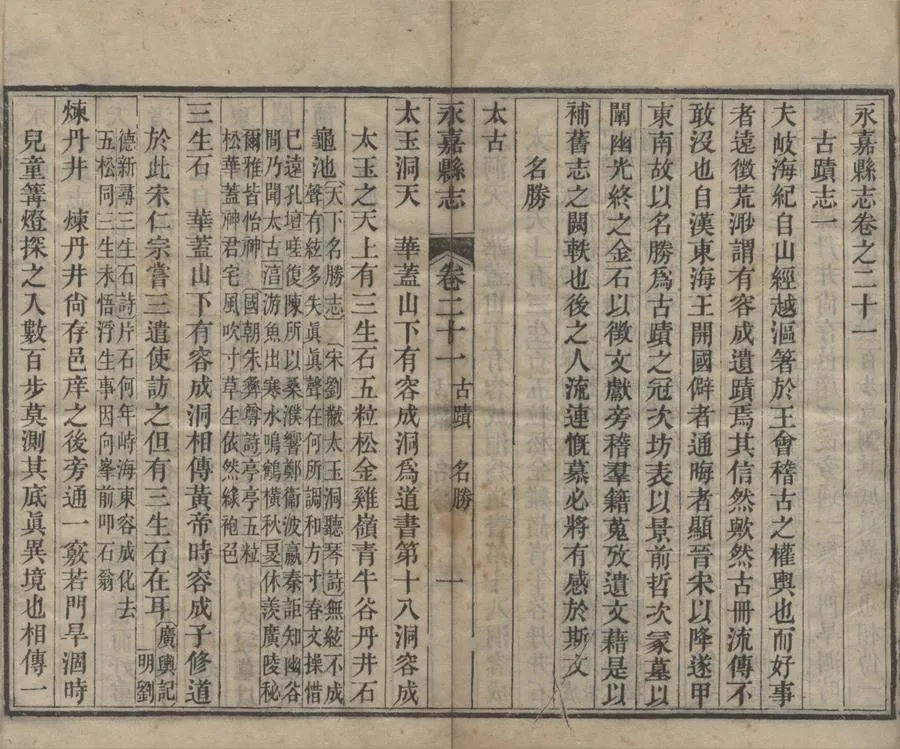 永嘉縣志卷之二十一
古蹟志一
夫岐海紀自山經越漚箸於王會稽古之權輿也而好事
者遠徵荒渺謂有容成遺蹟焉其信然歟然古冊流傳不
敢沒也自漢東海王開國僻者通晦者顯晉宋以降遂甲
東南故以名勝爲古蹟之冠次坊表以景前哲次冢墓以
闡幽光終之金石以徵文獻旁稽羣籍蒐攷遺文藉是以
補舊志之闕軼也後之人流連慨慕必將有感於斯文
名勝
太古
永嘉縣志 卷二十一 古蹟 名勝 一
太玉洞天 華蓋山下有容成洞爲道書第十八洞容成
太玉之天上有三生石五粒松金雞嶺青牛谷丹井石
龜池天下名勝志 宋劉黻太玉洞聽琴詩無絃不成
聲有絃多失眞眞聲在何所調和方寸春文操惜
已遠孔壇嗟復陳所以桑濮響鄭衞波嬴秦詎知幽谷
間乃聞太古湻游魚出寒水鳴鶴橫秋旻休羨廣陵秘
爾雅皆怡神 國朝朱彝尊詩亭亭五粒
松華蓋神君宅風吹寸草生依然綠袍色
三生石 華蓋山下有容成洞相傳黃帝時容成子修道
於此宋仁宗嘗三遣使訪之但有三生石在耳廣輿記
明劉
德新尋三生石詩片石何年峙海東容成化去
五松同三生未悟浮生事因向峯前叩石翁
煉丹井 煉丹井尙存邑庠之後旁通一竅若門旱涸時
兒童篝燈探之入數百步莫測其底眞異境也相傳一